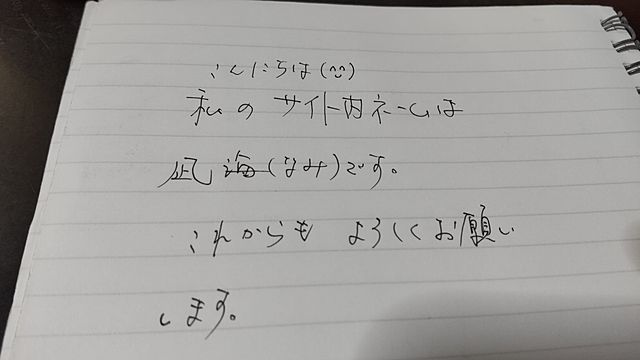 こんにちは(^^)
私のサイト内ネームは
凪海(なみ)です。
これからもよろしくお願い
します。